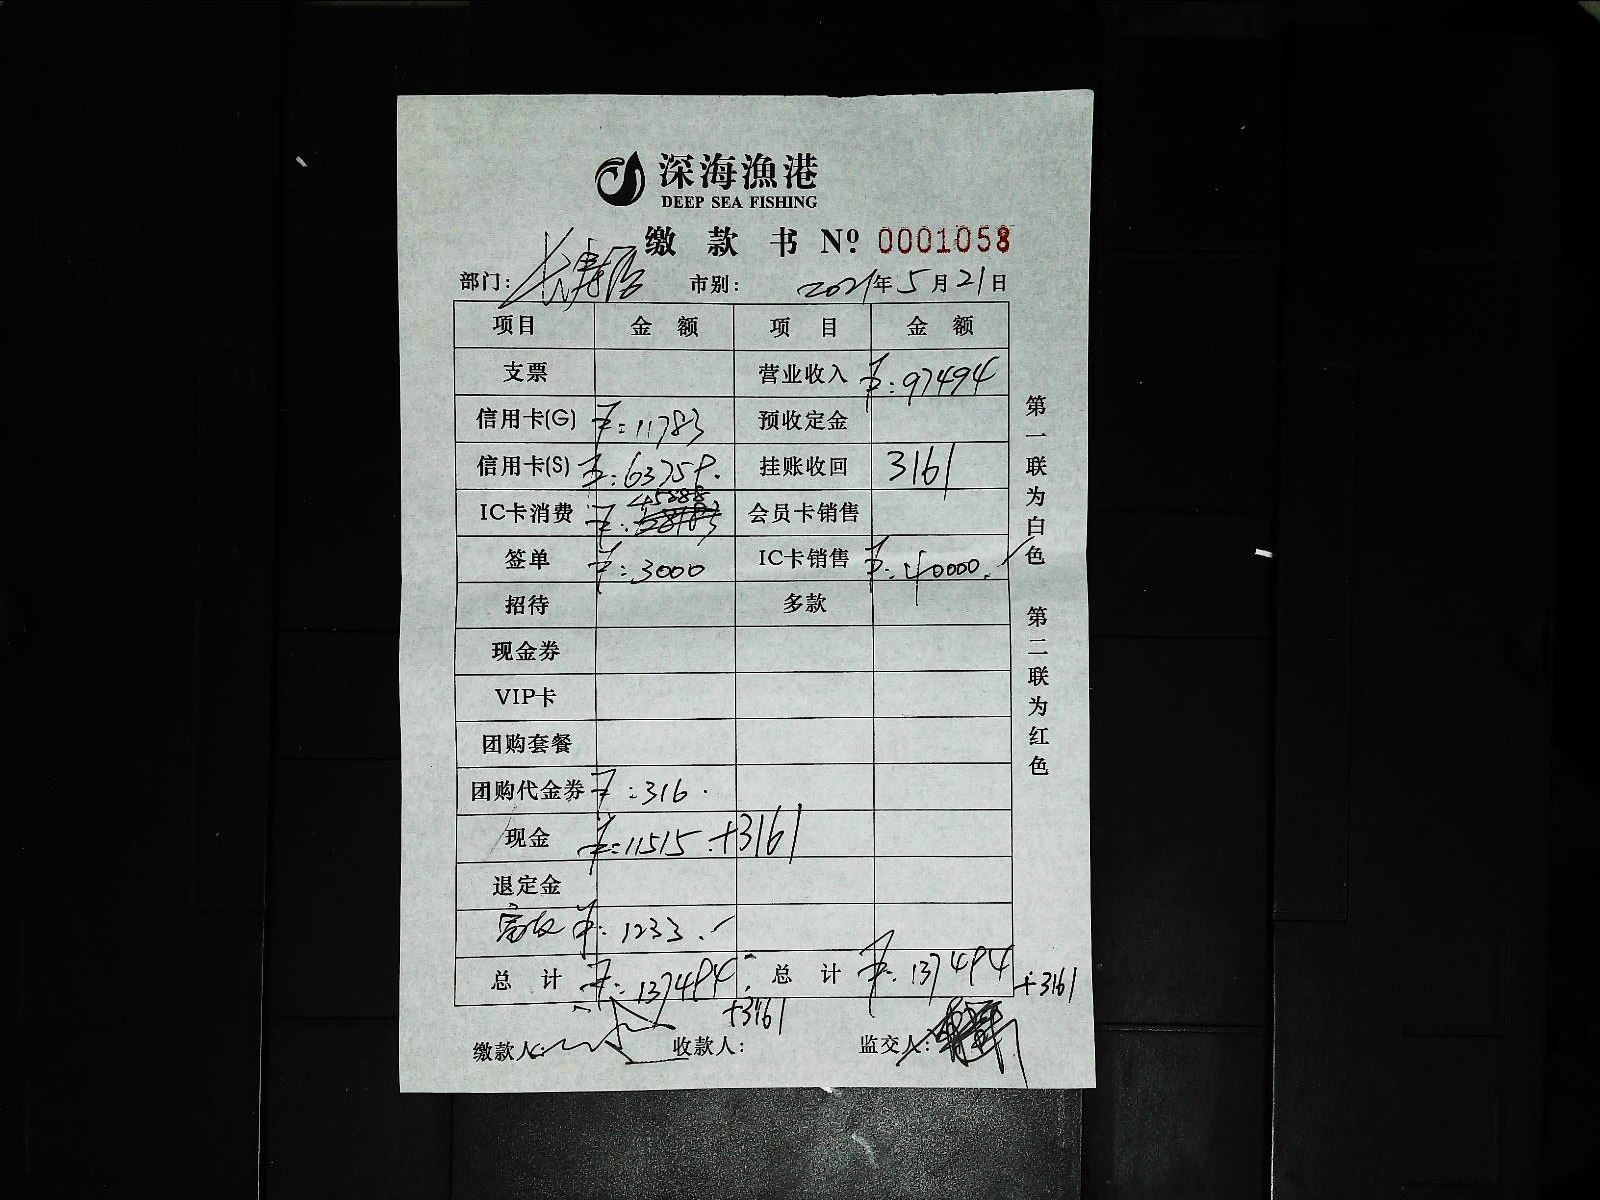 深海渔港
DEEP SEA FISHING
缴款书 Nº 0001058
部门: 市别: 2021年5月21日
项目 金额 项目 金额
支票 营业收入 ¥:97494
信用卡(G) ¥:11783 预收定金
信用卡(S) ¥:63759. 挂账收回 3161
IC卡消费 ¥: 45888 会员卡销售
签单 ¥:3000 IC卡销售 ¥:40000.
招待 多款
现金券
VIP卡
团购套餐
团购代金券 ¥:316.
现金 ¥:11515.+3161
退定金
¥:1233.
总计 ¥:137494. 总计 ¥:137494
+3161 +3161
缴款人: 收款人: 监交人:
第一联为白色 第二联为红色